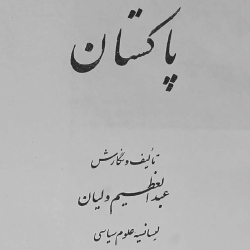 پاکستان
تألیف و نگارش
عبدالعظیم ولیان
لیسانسیه علوم سیاسی